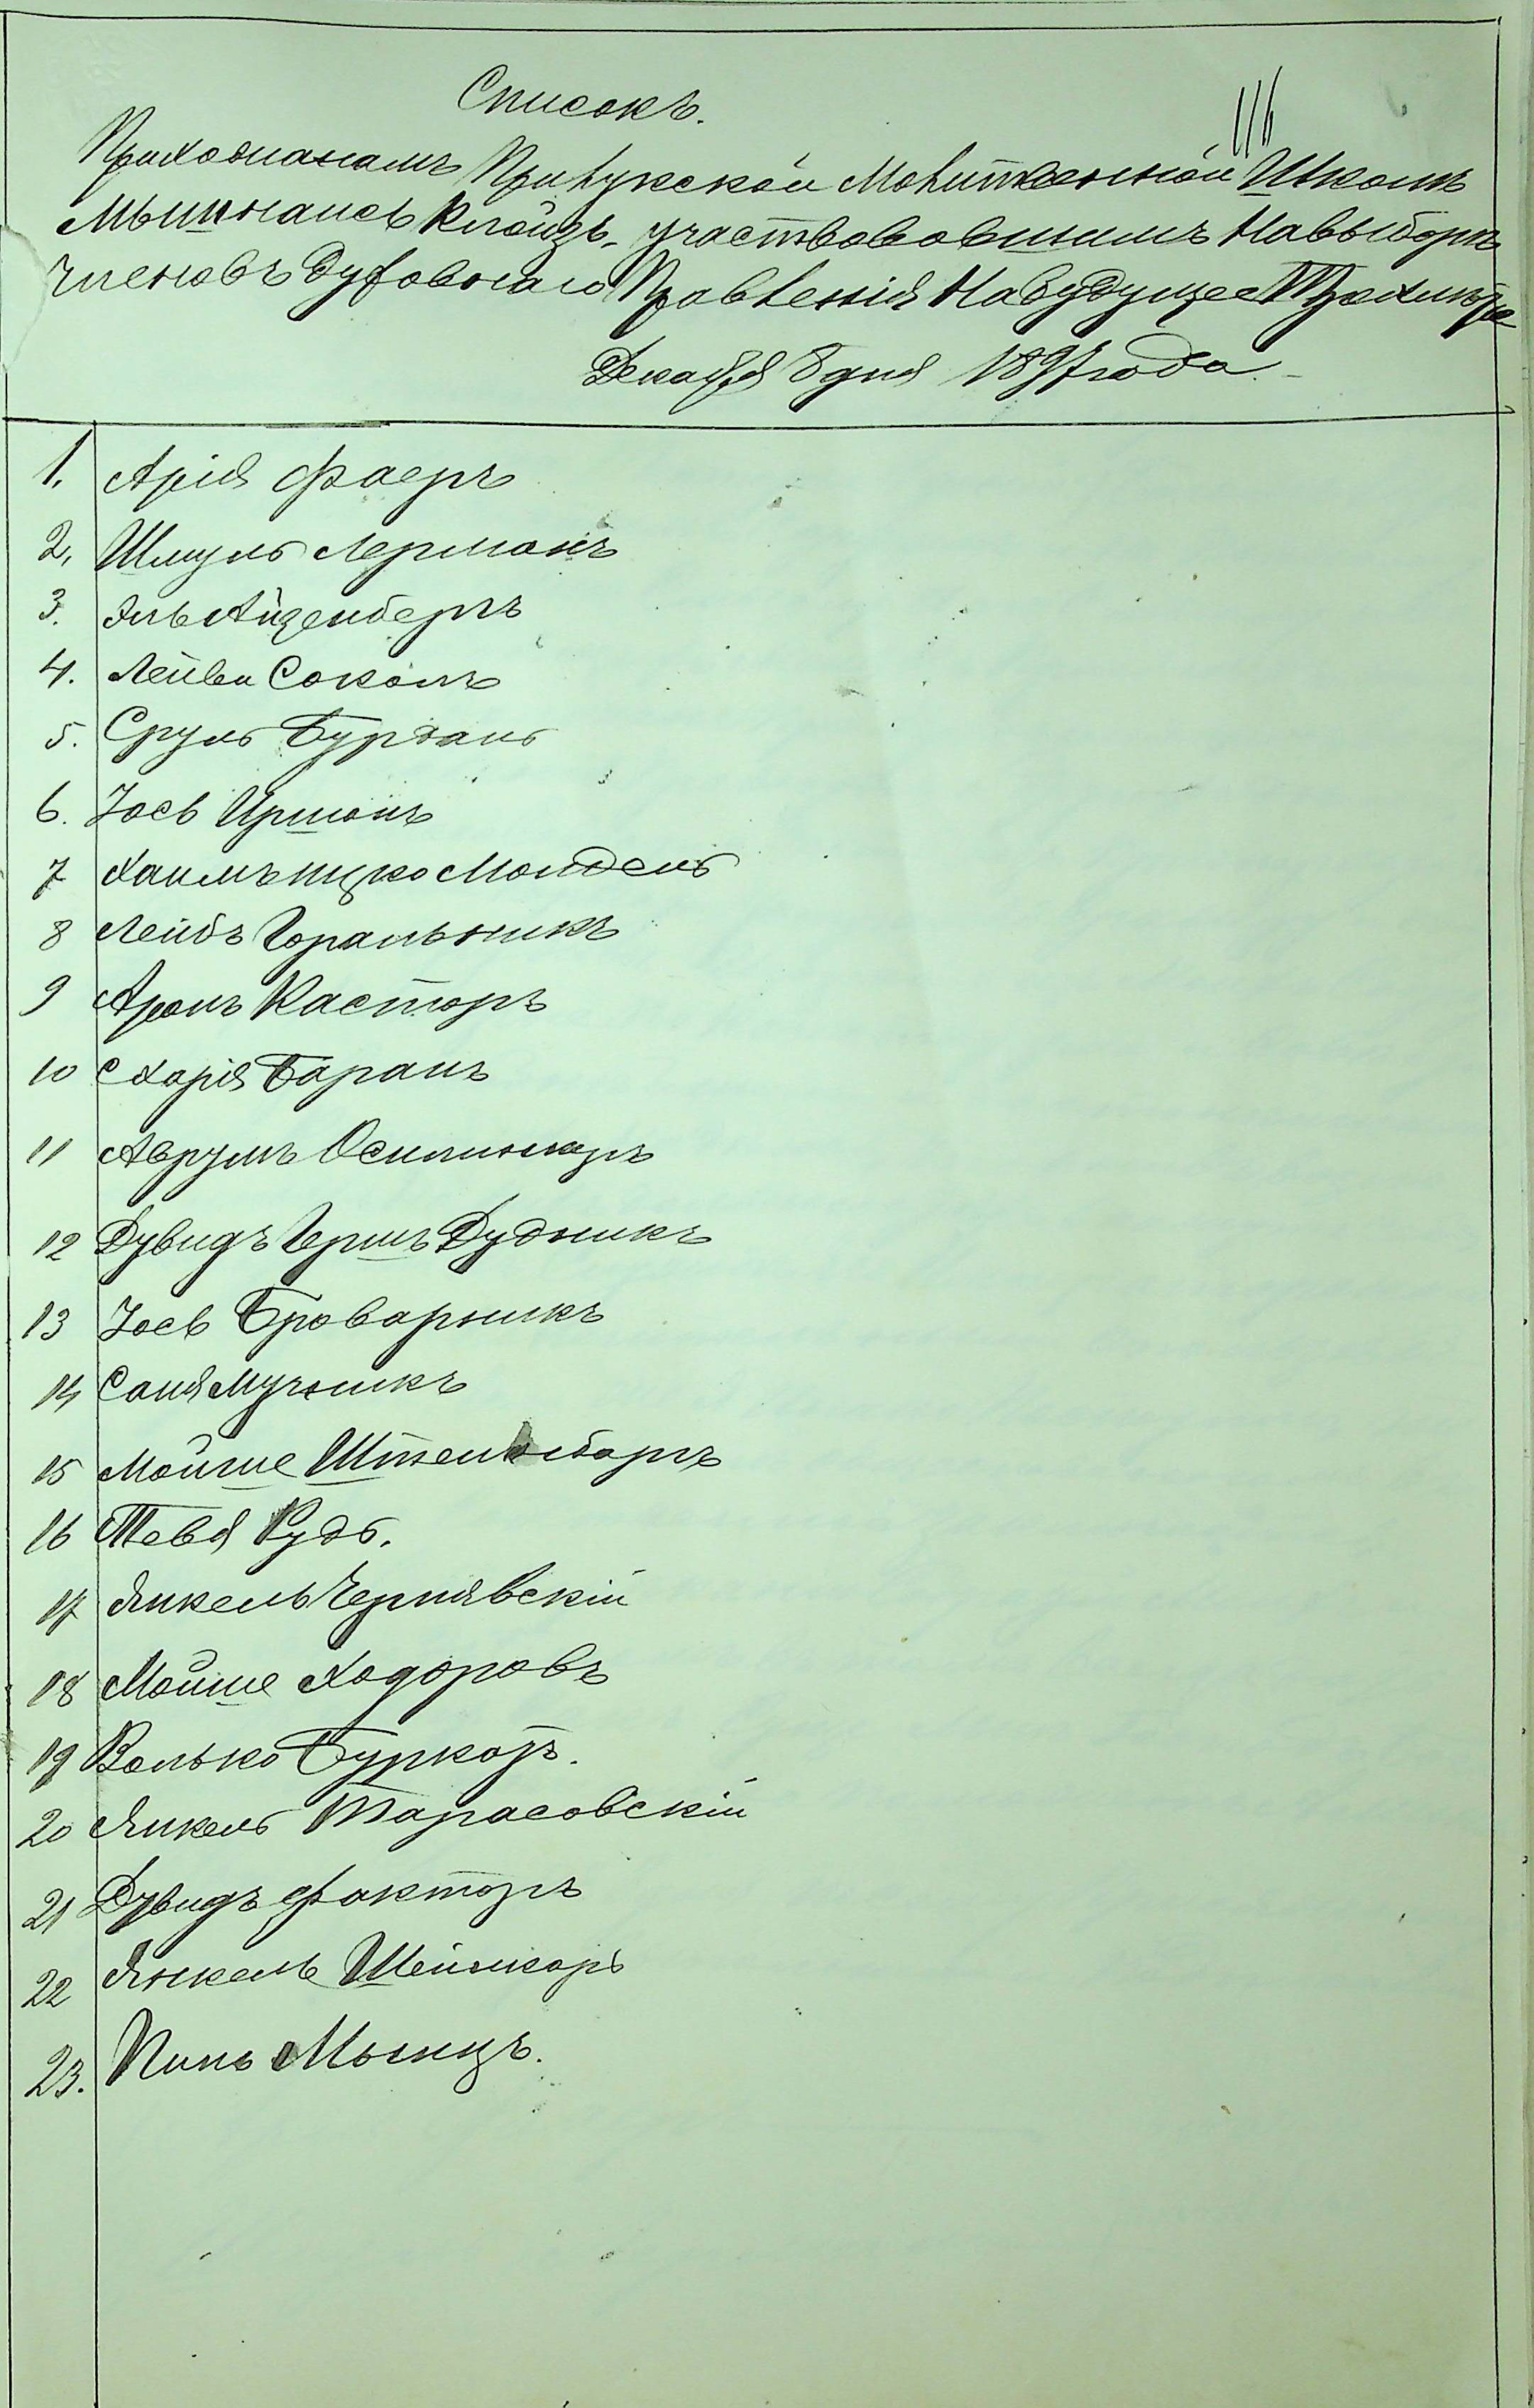 Списокъ.
Прихожанамъ Прилукской Молитвенной Школы
Мышнаивъ Клойзъ, участвовавшимъ На выборъ
Членовъ Духовнаго Правленія На будущее Трехлетіе
Декабря 8 дня 1897 года.
1. Арія Фаеръ
2. Шмуль Лерманъ
3. Эль Айзенбергъ
4. Лейви Соколъ
5. Сруль Бурдань
6. Іось Иршонъ
7 Хаимъ Ицко Мондель
8 Лейбъ Горальникъ
9 Аронъ Касторъ
10 Схарія Баранъ
11 Аврумъ
12 Дувидъ Гершъ Дудникъ
13 Іось Броварникъ
14 Саня Мучникъ
15 Мойше
16 Тевя Рудь.
17 Янкель Чернявскій
18 Мойше Ходоровъ
19 Волько
20 Янкель Тарасовскій
21 Дувидъ Факторъ
22 Янкель Шейнкарь
23. Пинь